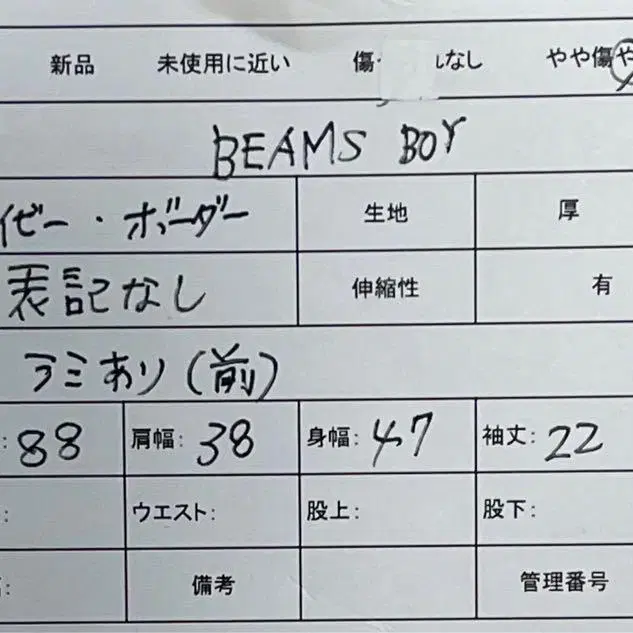 新品 未使用に近い 傷・ れなし やや傷や
BEAMS BOY
イビー・ボーダー 生地 厚
表記なし 伸縮性 有
ラミあり(前)
:88 肩幅:38 身幅:47 袖丈:22
: ウエスト: 股上: 股下:
: 備考 管理番号